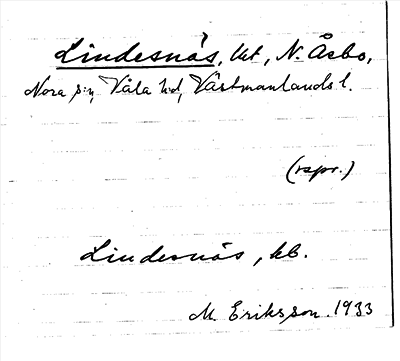 Lindesnäs, lht, N. Åsbo,
Nora s:n, Våla hd, Västmanlands l.
(rspr.)
Lindesnäs, kb.
M. Eriksson. 1933